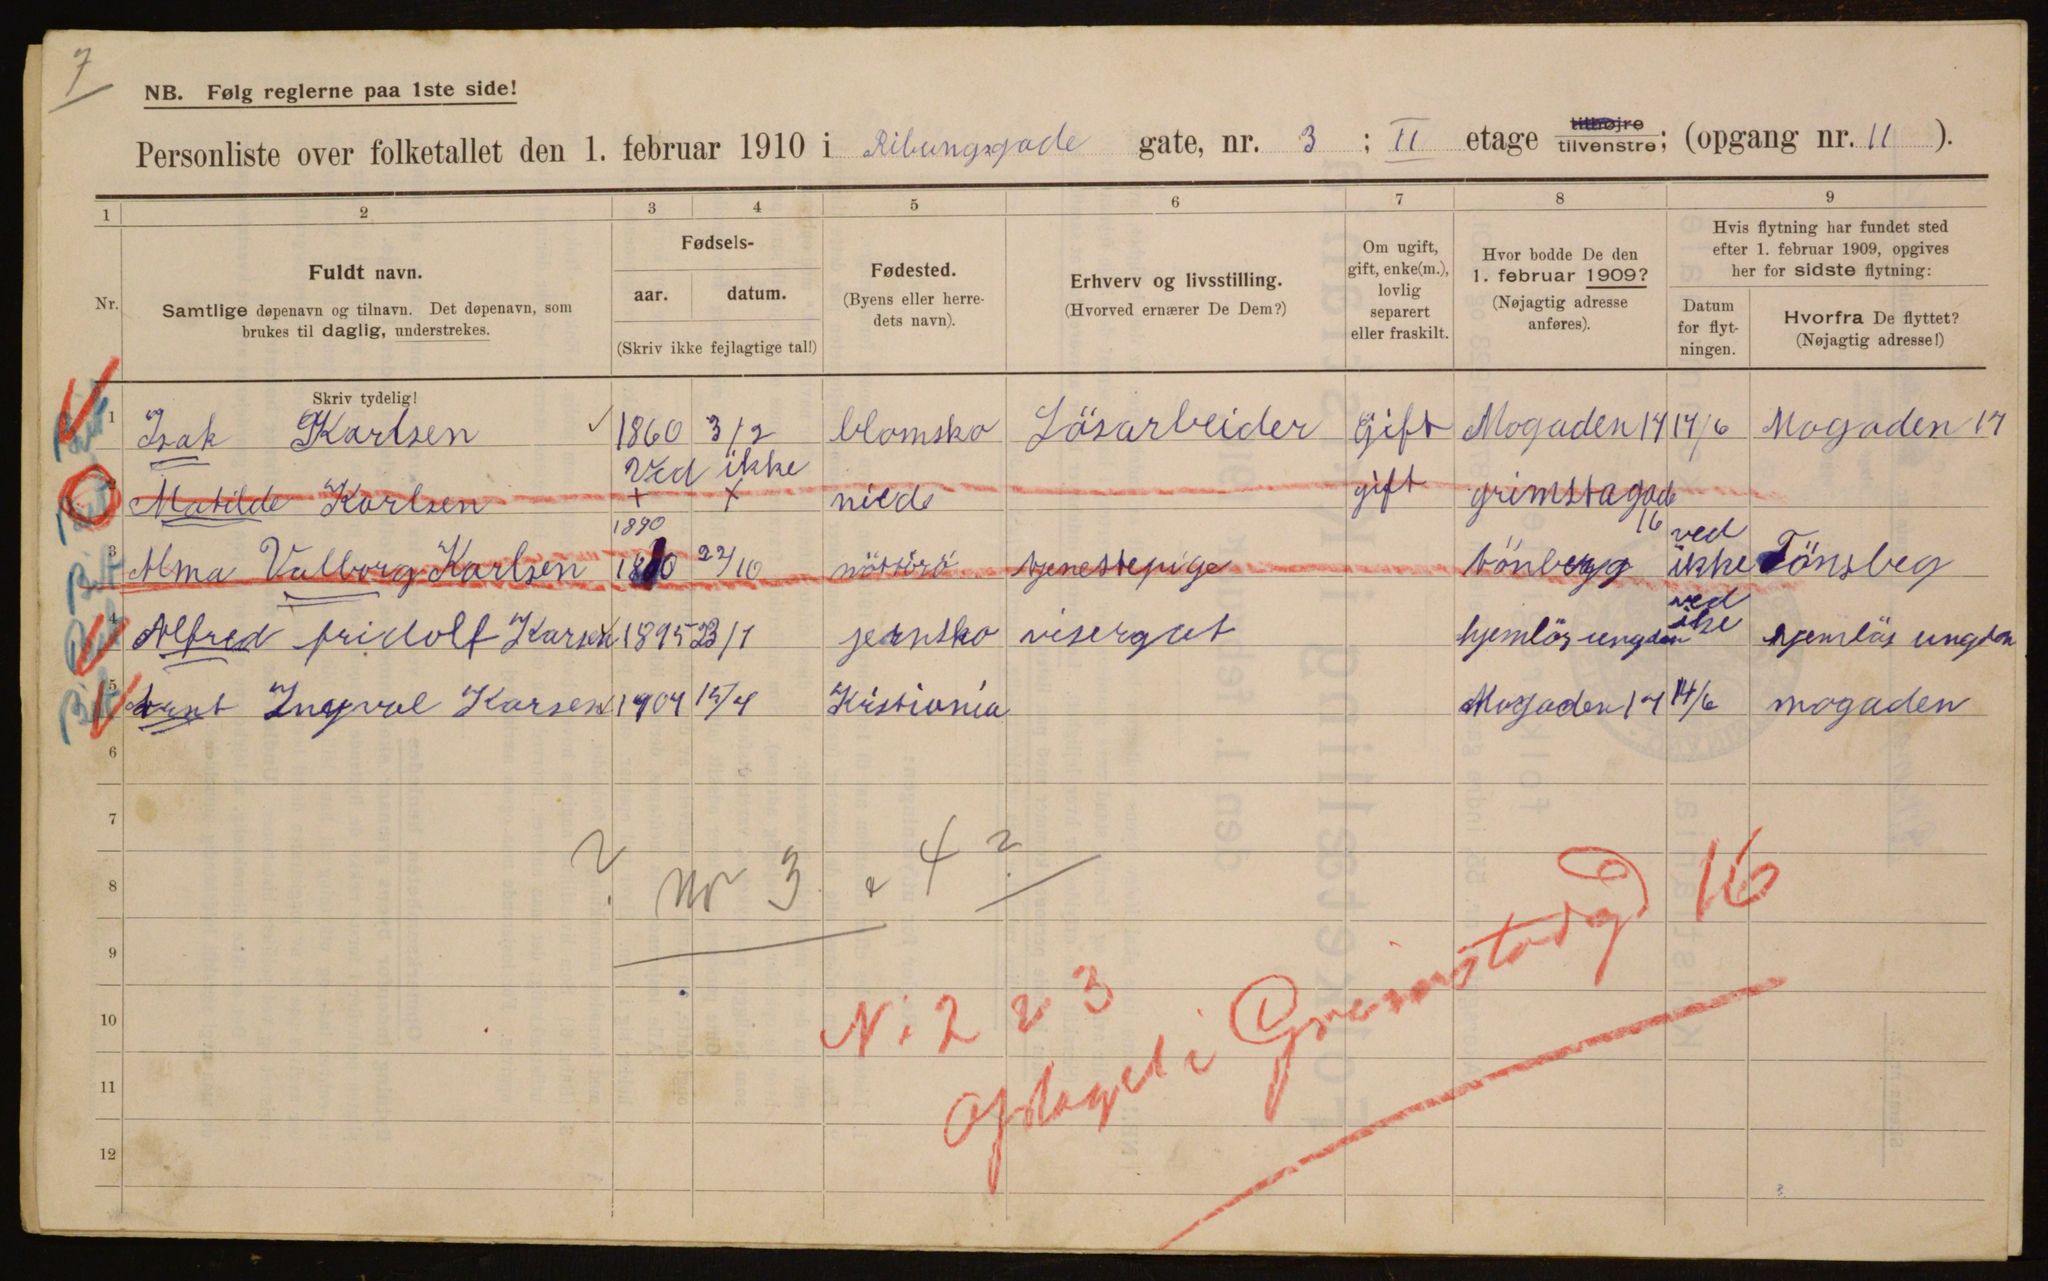 7
NB. Følg reglerne paa 1ste side!
Personliste over folketallet den 1. februar 1910 i Ribungsgade gate, nr. 3 ; II etage tilhøjre tilvenstre; (opgang nr. 11 ).
1 2 3 4 5 6 7 8 9
Nr.
Fuldt navn.
Samtlige døpenavn og tilnavn. Det døpenavn, som
brukes til daglig, understrekes.
Skriv tydelig!
Fødsels-
aar. datum.
(Skriv ikke fejlagtige tal!)
Fødested.
(Byens eller herre-
dets navn).
Erhverv og livsstilling.
(Hvorved ernærer De Dem?)
Om ugift,
gift, enke(m.),
lovlig
separert
eller fraskilt.
Hvor bodde De den
1. februar 1909?
(Nøjagtig adresse
anføres).
Hvis flytning har fundet sted
efter 1. februar 1909, opgives
her for sidste flytning:
Datum
for flyt-
ningen.
Hvorfra De flyttet?
(Nøjagtig adresse!)
1 Isak Karlsen 1860 3/2 blomsko Lösarbeider Gift Mogaden 17 14/6 Mogaden 17
Ved ikke
2 Matilde Karlsen + x nieds gift grimstagade 16
1890
3 Alma Valborg Karlsen 22/10 nötterö tjenestepige tönberg ved ikke Tönsbeg
4 Alfred fridolf Karsen 1895 23/1 jernsko visergut hjemlös ungdom ved ikke hjemlös ungdom
5 Arnt Ingval Karsen 1904 15/4 Kristiania Mogaden 17 14/6 mogaden
6
7
8
9
10
11
12
? Nr 3 & 4?
Nr 2 & 3
opptaget i Grimstadgd 16